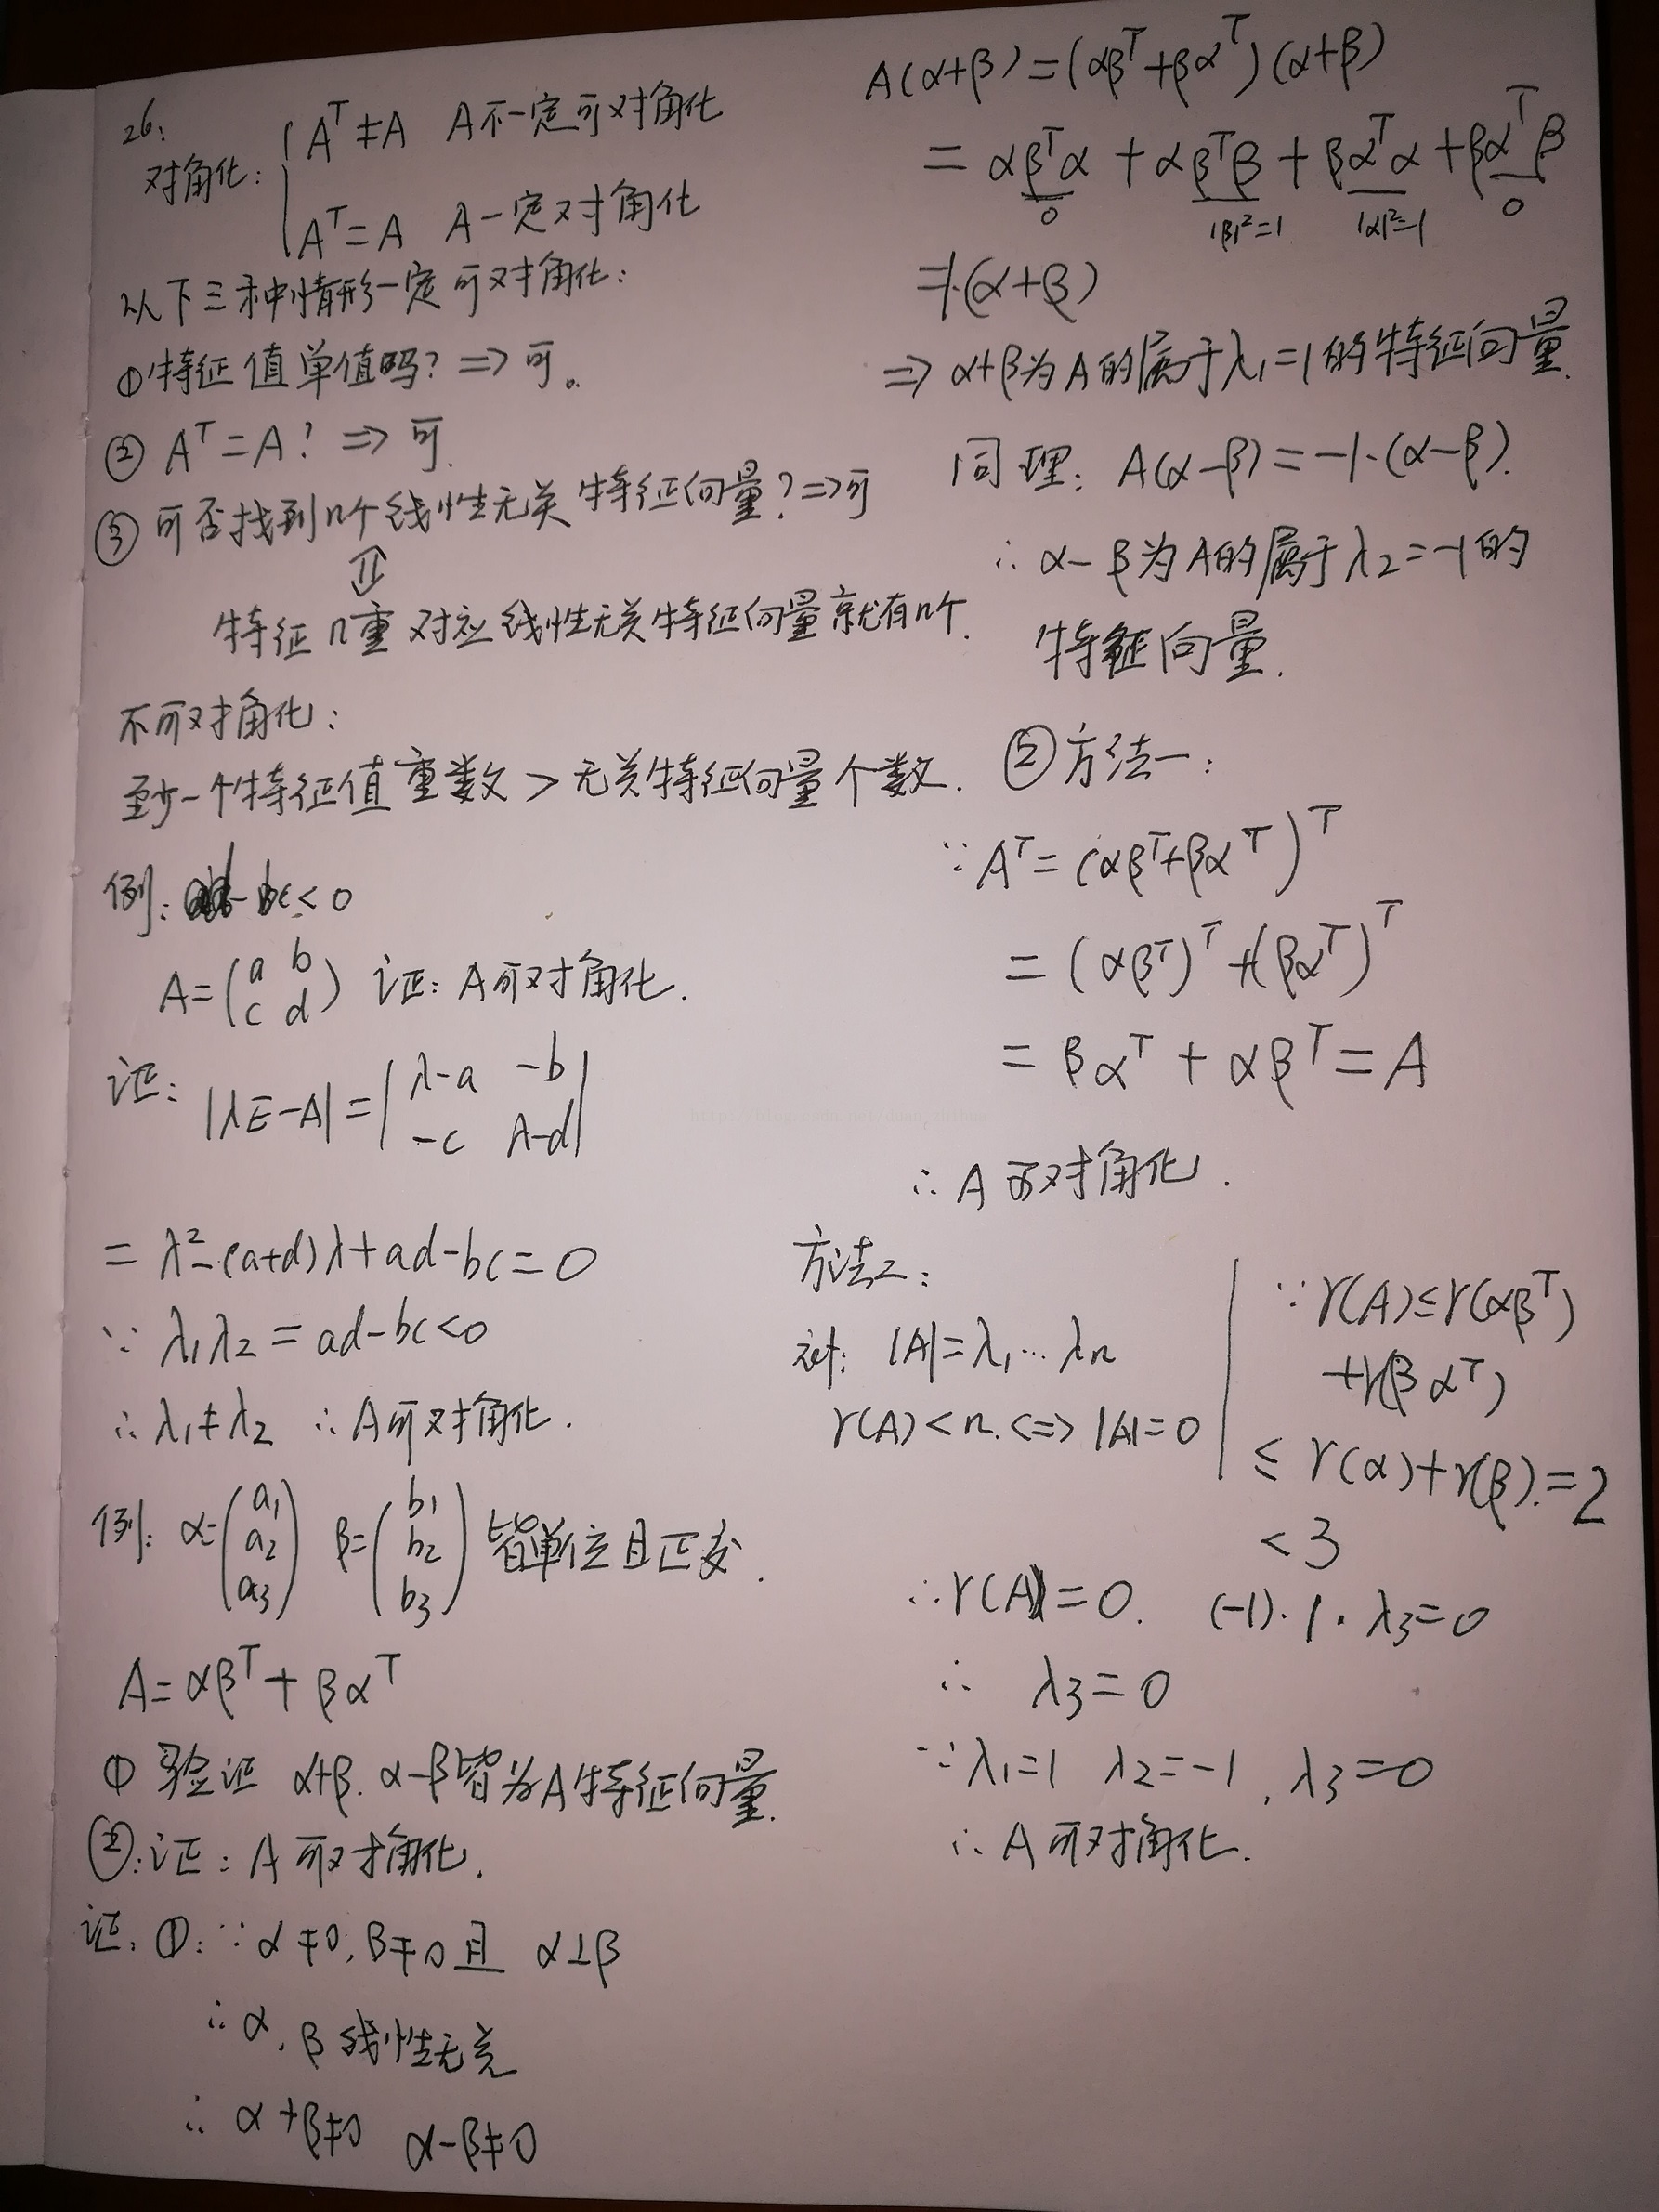 26:
对角化: { Aᵀ≠A A不一定可对角化
Aᵀ=A A一定对角化
以下三种情形一定可对角化:
①特征值单值吗? => 可。
② Aᵀ=A? => 可.
③ 可否找到n个线性无关特征向量? => 可
⇕
特征n重对应线性无关特征向量就有n个.
不可对角化:
至少一个特征值重数 > 无关特征向量个数.
例: ad-bc<0
A=(a b
c d) 证: A可对角化.
证: |λE-A| = |λ-a -b
-c λ-d|
= λ²-(a+d)λ+ad-bc=0
∵ λ₁λ₂=ad-bc<0
∴ λ₁≠λ₂ ∴ A可对角化.
例: α=(a₁
a₂
a₃) β=(b₁
b₂
b₃) 皆单位且正交.
A=αβᵀ+βαᵀ
① 验证 α+β. α-β皆为A特征向量.
②: 证: A可对角化.
证: ①: ∵ α≠0, β≠0 且 α⊥β
∴ α, β 线性无关
∴ α+β≠0 α-β≠0
A(α+β)=(αβᵀ+βαᵀ)(α+β)
= αβᵀα + αβᵀβ + βαᵀα + βαᵀβ
0 |β|²=1 |α|²=1 0
=1·(α+β)
=> α+β为A的属于λ₁=1的特征向量.
同理: A(α-β)=-1·(α-β).
∴ α-β为A的属于λ₂=-1的
特征向量.
②方法一:
∵ Aᵀ=(αβᵀ+βαᵀ)ᵀ
= (αβᵀ)ᵀ+(βαᵀ)ᵀ
= βαᵀ + αβᵀ = A
∴ A可对角化.
方法二:
|A|=λ₁…λn
r(A)<n. <=> |A|=0
∵ r(A)≤r(αβᵀ)
+r(βαᵀ)
≤ r(α)+r(β).=2
<3
∴ r(A)=0. (-1)·1·λ₃=0
∴ λ₃=0
∵ λ₁=1 λ₂=-1, λ₃=0
∴ A可对角化.